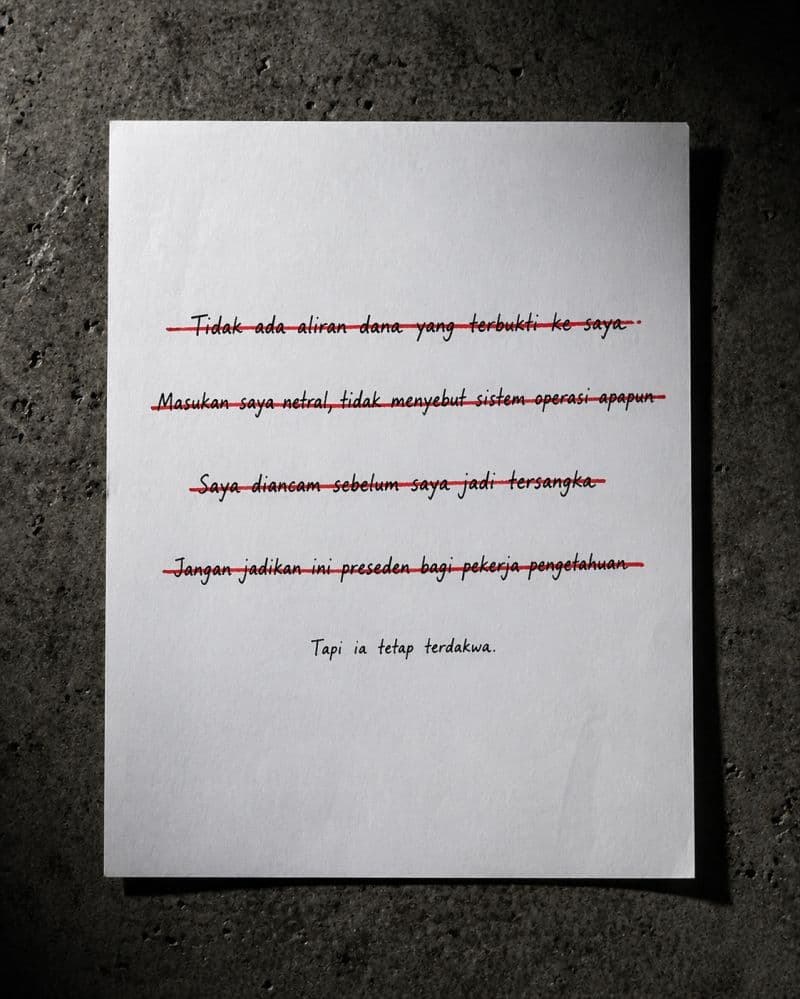 Tidak ada aliran dana yang terbukti ke saya.
Masukan saya netral, tidak menyebut sistem operasi apapun
Saya diancam sebelum saya jadi tersangka
Jangan jadikan ini preseden bagi pekerja pengetahuan
Tapi ia tetap terdakwa.